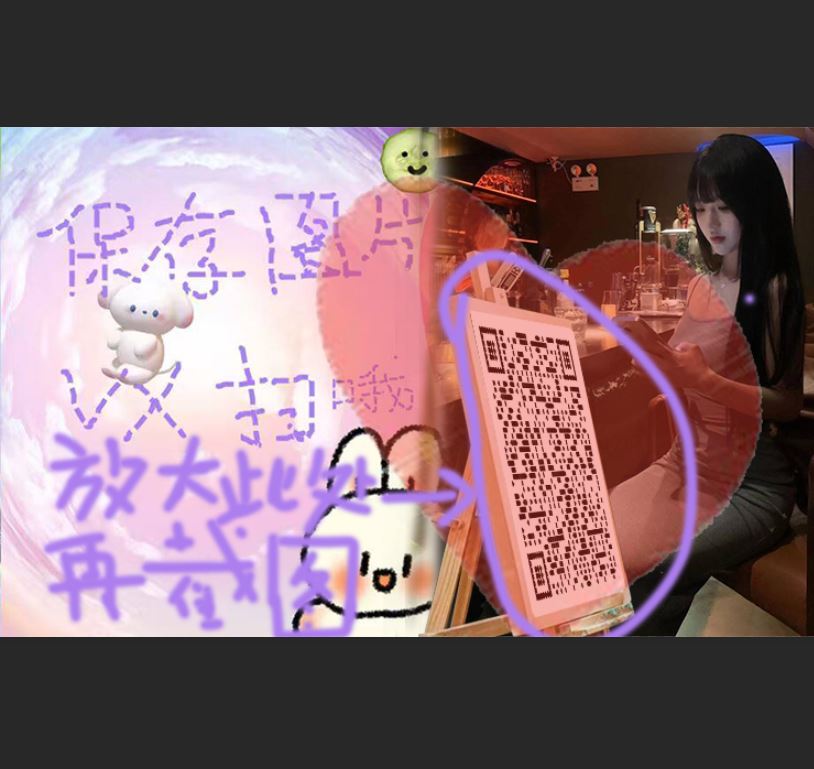 保存图片
必扫哦
放大此处
再截图